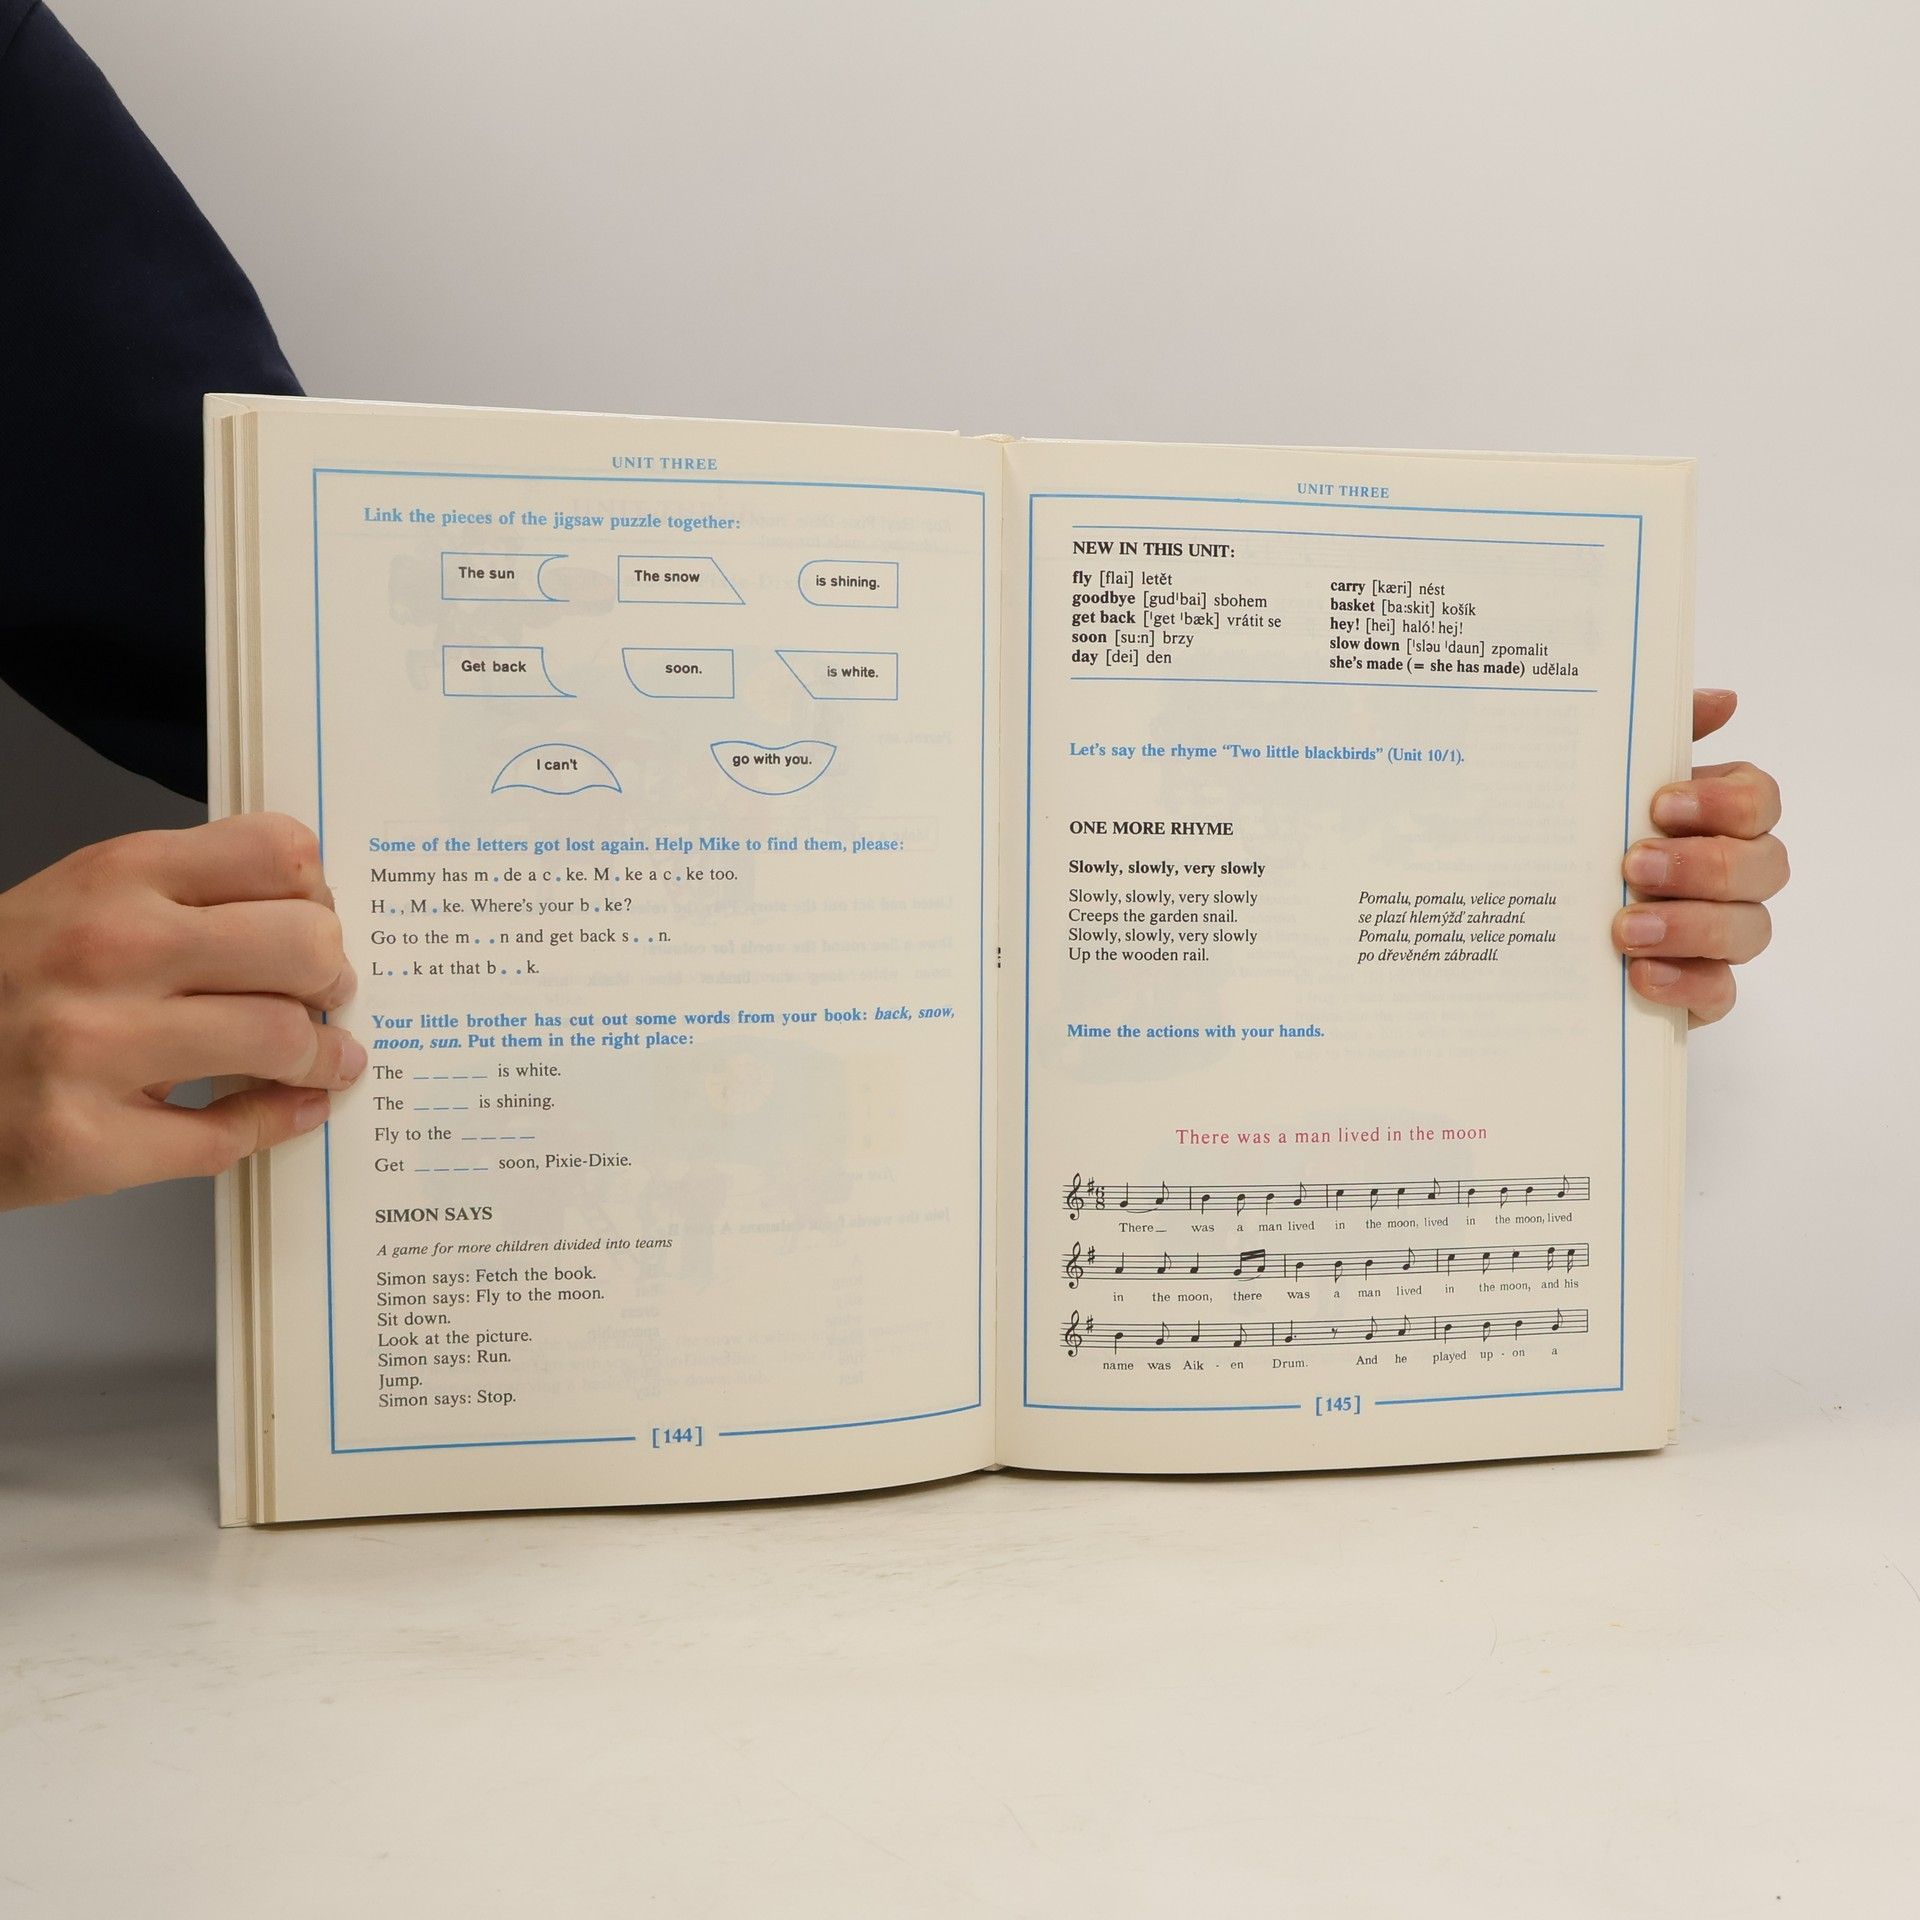 UNIT THREE
Link the pieces of the jigsaw puzzle together:
The sun
The snow
is shining.
Get back
soon.
is white.
I can't
go with you.
Some of the letters got lost again. Help Mike to find them, please:
Mummy has m . de a c . ke. M . ke a c . ke too.
H . , M . ke. Where's your b . ke?
Go to the m . . n and get back s . . n.
L . . k at that b . . k.
Your little brother has cut out some words from your book: back, snow,
moon, sun. Put them in the right place:
The _ _ _ _ is white.
The _ _ _ is shining.
Fly to the _ _ _ _
Get _ _ _ _ soon, Pixie-Dixie.
SIMON SAYS
A game for more children divided into teams
Simon says: Fetch the book.
Simon says: Fly to the moon.
Sit down.
Look at the picture.
Simon says: Run.
Jump.
Simon says: Stop.
[144]
UNIT THREE
NEW IN THIS UNIT:
fly [flai] letět
goodbye [gud'bai] sbohem
get back ['get 'bæk] vrátit se
soon [su:n] brzy
day [dei] den
carry [kæri] nést
basket [ba:skit] košík
hey! [hei] haló! hej!
slow down ['sləu 'daun] zpomalit
she's made (= she has made) udělala
Let's say the rhyme “Two little blackbirds” (Unit 10/1).
ONE MORE RHYME
Slowly, slowly, very slowly
Slowly, slowly, very slowly
Creeps the garden snail.
Slowly, slowly, very slowly
Up the wooden rail.
Pomalu, pomalu, velice pomalu
se plazí hlemýžď zahradní.
Pomalu, pomalu, velice pomalu
po dřevěném zábradlí.
Mime the actions with your hands.
There was a man lived in the moon
6
8
There_ was a man lived in the moon, lived in the moon, lived
in the moon, there was a man lived in the moon, and his
name was Aik - en Drum. And he played up - on a
[145]